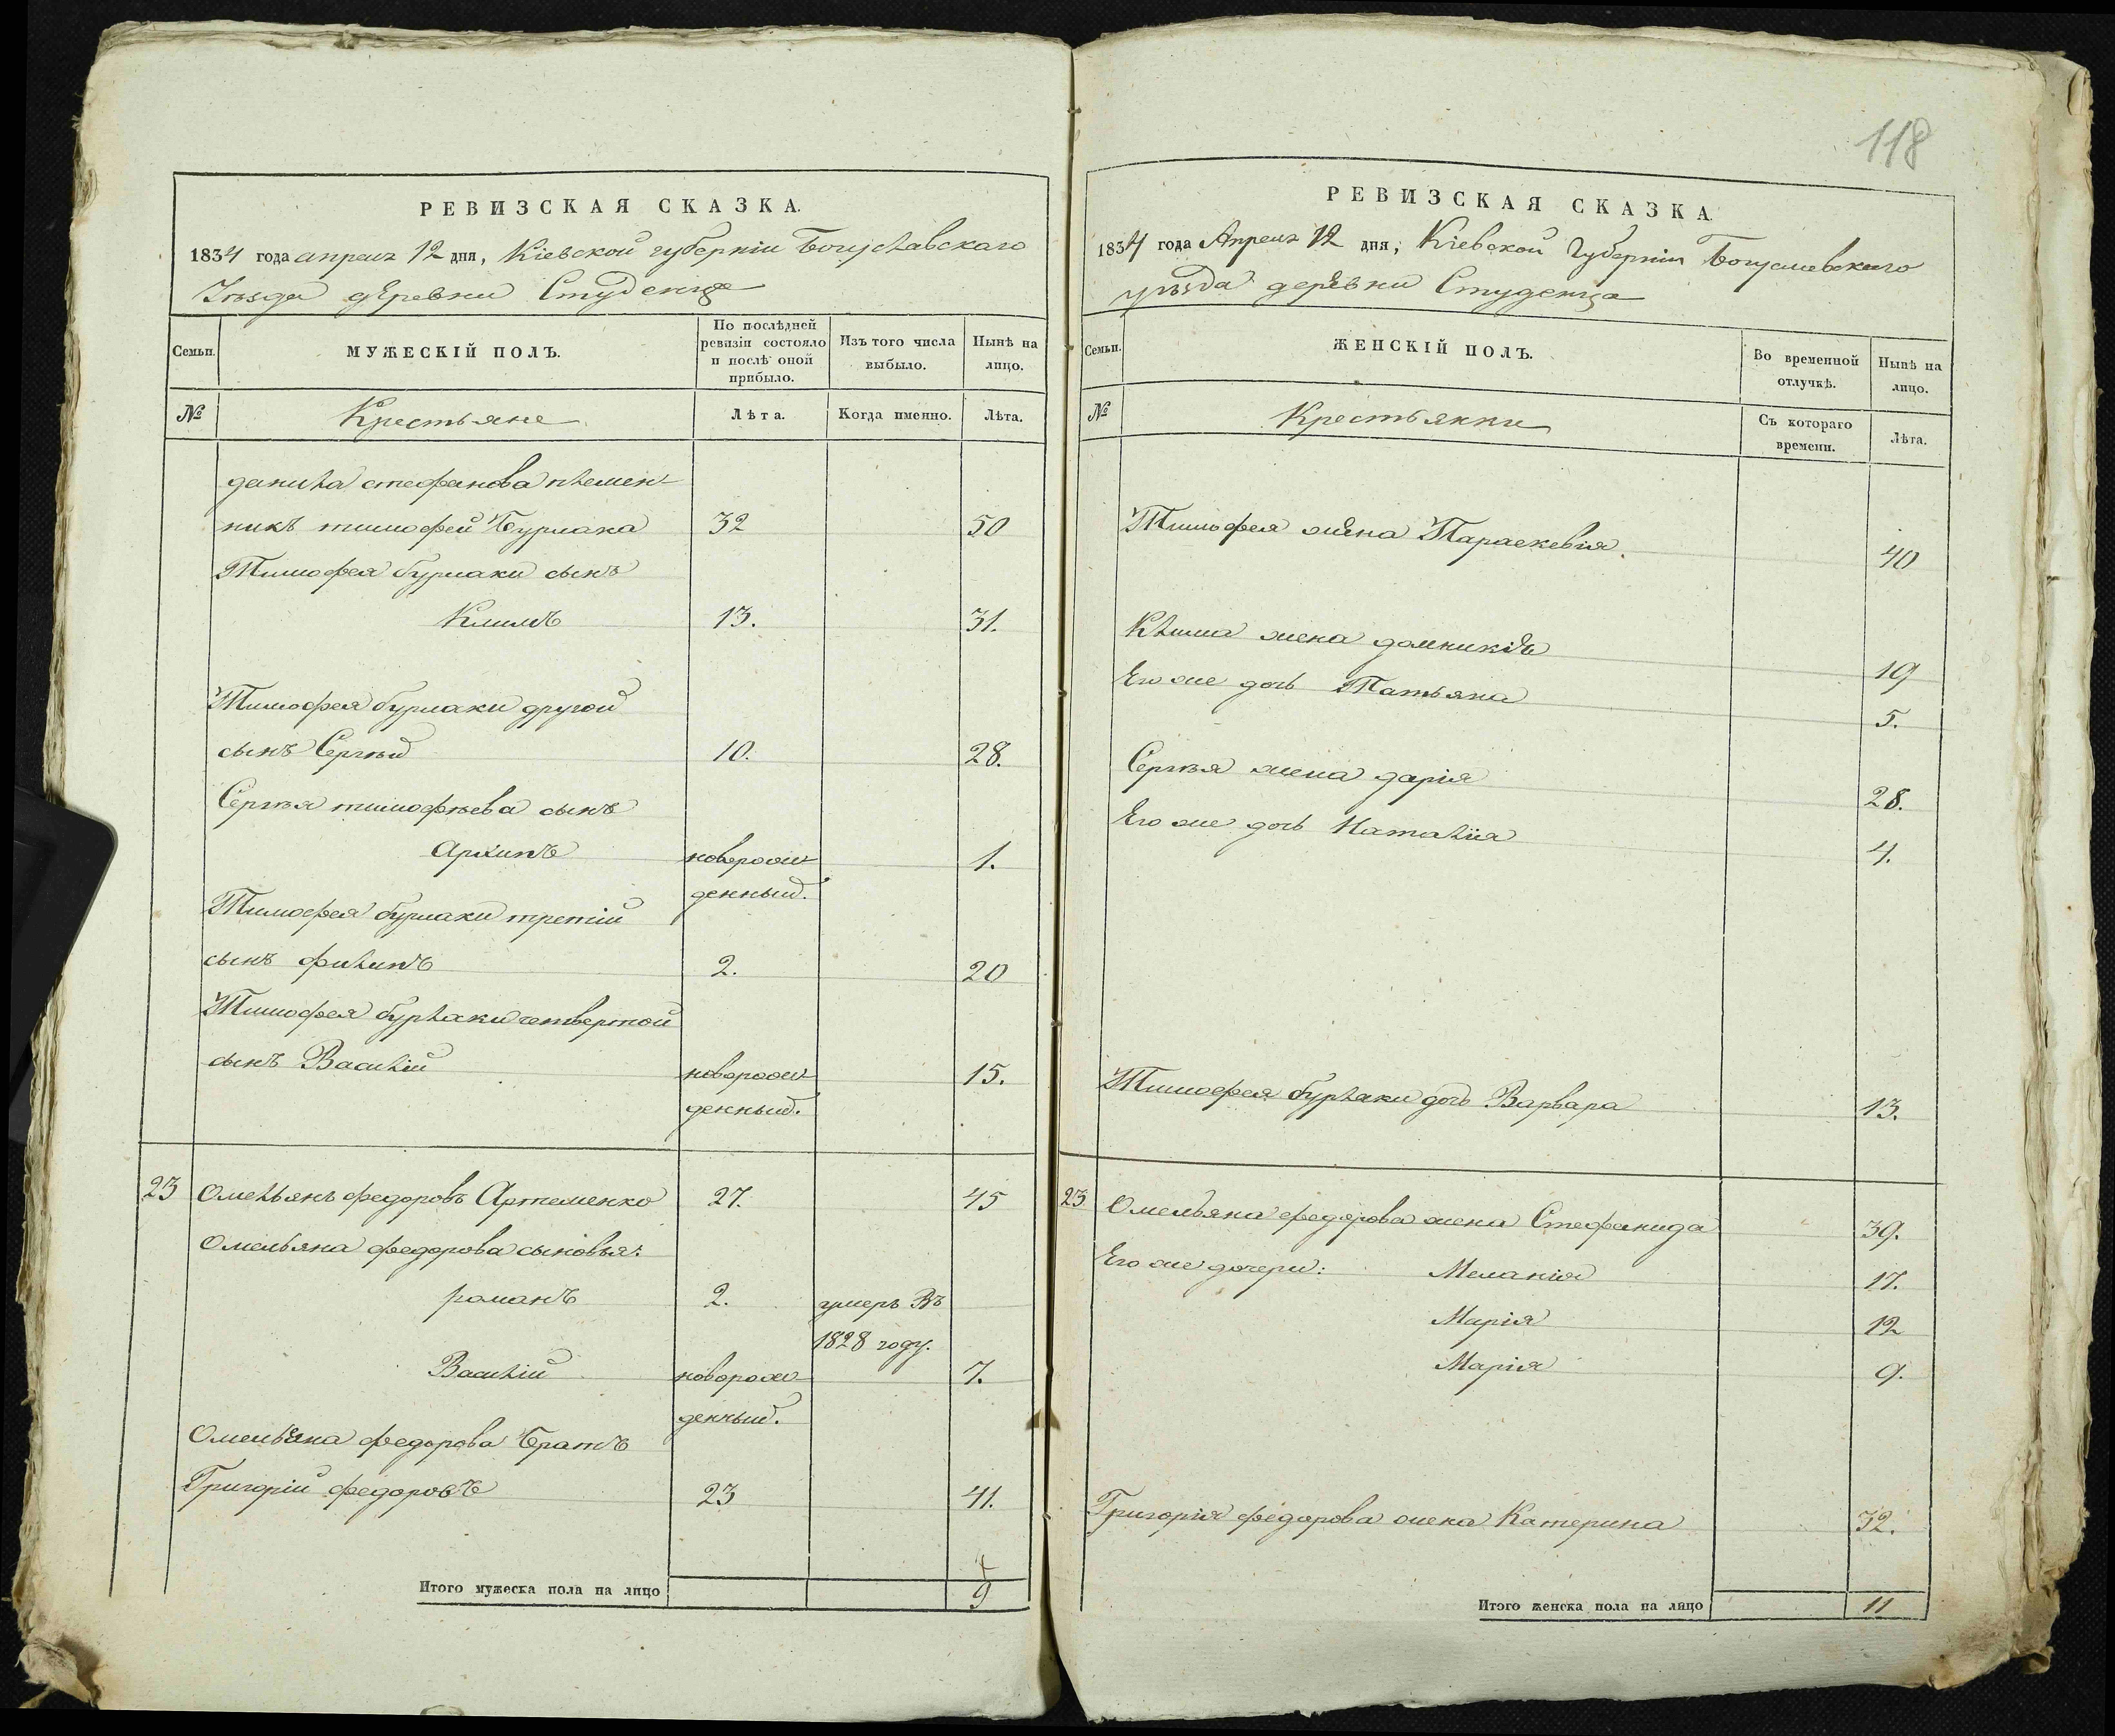 118
РЕВИЗСКАЯ СКАЗКА.
1834 года апреля 12 дня, Кіевской губерніи Богуславскаго
Уѣзда деревни Студенца
Семьи.
МУЖЕСКІЙ ПОЛЪ.
По послѣдней ревизіи состояло и послѣ оной прибыло.
Изъ того числа выбыло.
Нынѣ на лицо.
№
Крестьяне
Лѣта.
Когда именно.
Лѣта.
данила стефанова племен-
никъ тимофей Бурлака 32 50
Тимофея бурлаки сынъ
Климъ 13. 31.
Тимофея бурлаки другой
сынъ Сергѣй 10. 28.
Сергѣя тимофѣева сынъ
Архипъ новорож- 1.
денный.
Тимофея бурлаки третій
сынъ филипъ 2. 20
Тимофея бурлаки четвертой
сынъ Василій новорож- 15.
денный.
23 Омельянъ федоровъ Артеменко 27. 45
Омельяна федорова сыновья:
романъ 2. умеръ Въ
1828 году.
Василій новорож- 7.
денный.
Омельяна федорова Братъ
Григорій федоровъ 23 41.
Итого мужеска пола на лицо 9
РЕВИЗСКАЯ СКАЗКА.
1834 года Апреля 12 дня, Кіевской Губерніи Богуславского
уѣзда деревни Студенца
Семьи.
ЖЕНСКІЙ ПОЛЪ.
Во временной отлучкѣ.
Нынѣ на лицо.
№
Крестьянки
Съ котораго времени.
Лѣта.
Тимофея жена Параскевія. 40
Клима жена домникія 19
Его же дочь Татьяна 5.
Сергѣя жена дарія 28.
Его же дочь Наталія 4.
Тимофея бурлаки дочь Варвара 13.
23 Омельяна федорова жена Стефанида 39.
Его же дочери: Меланія 17.
Марія 12
Марія 9.
Григорія федорова жена Катерина 32.
Итого женска пола на лицо 11